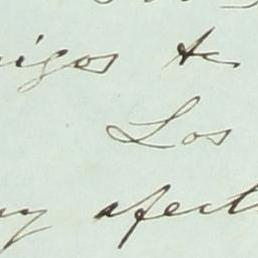 igos te
Los
y afect